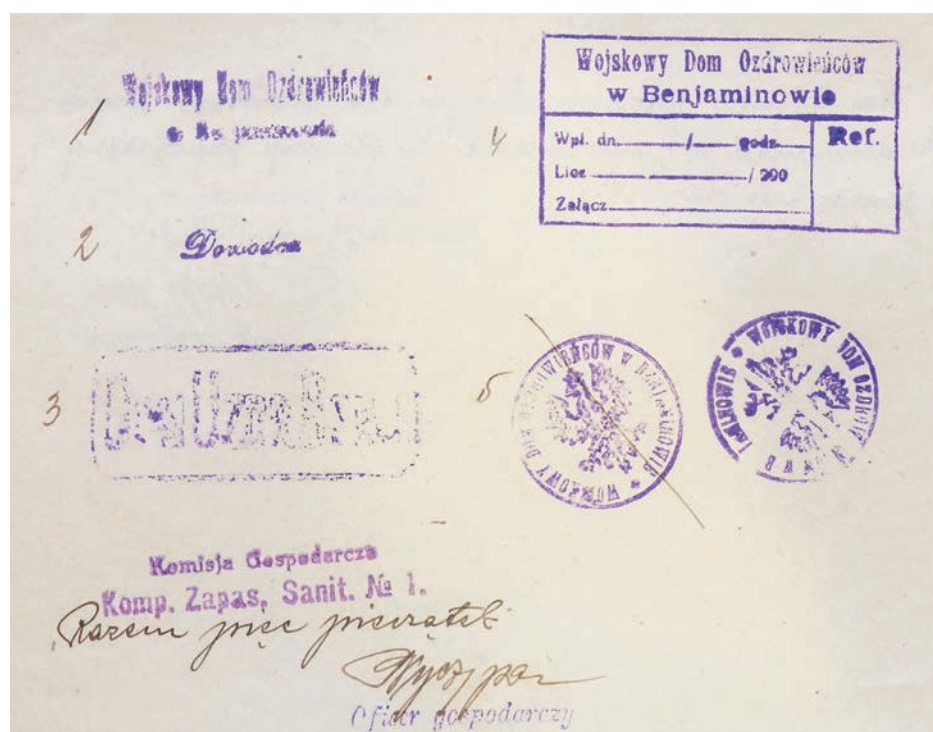 1
Wojskowy Dom Ozdrowieńców
2
Dowódca
3
4
Wojskowy Dom Ozdrowieńców
w Benjaminowie
Wpł. dn. / godz.
Ref.
Licz / 200
Załącz.
5
WOJSKOWY DOM OZDROWIEŃCÓW W BENIAMINOWIE
WOJSKOWY DOM OZDROW
Komisja Gospodarcza
Komp. Zapas. Sanit. № 1.
Razem pięć pieczątek
Oficer gospodarczy